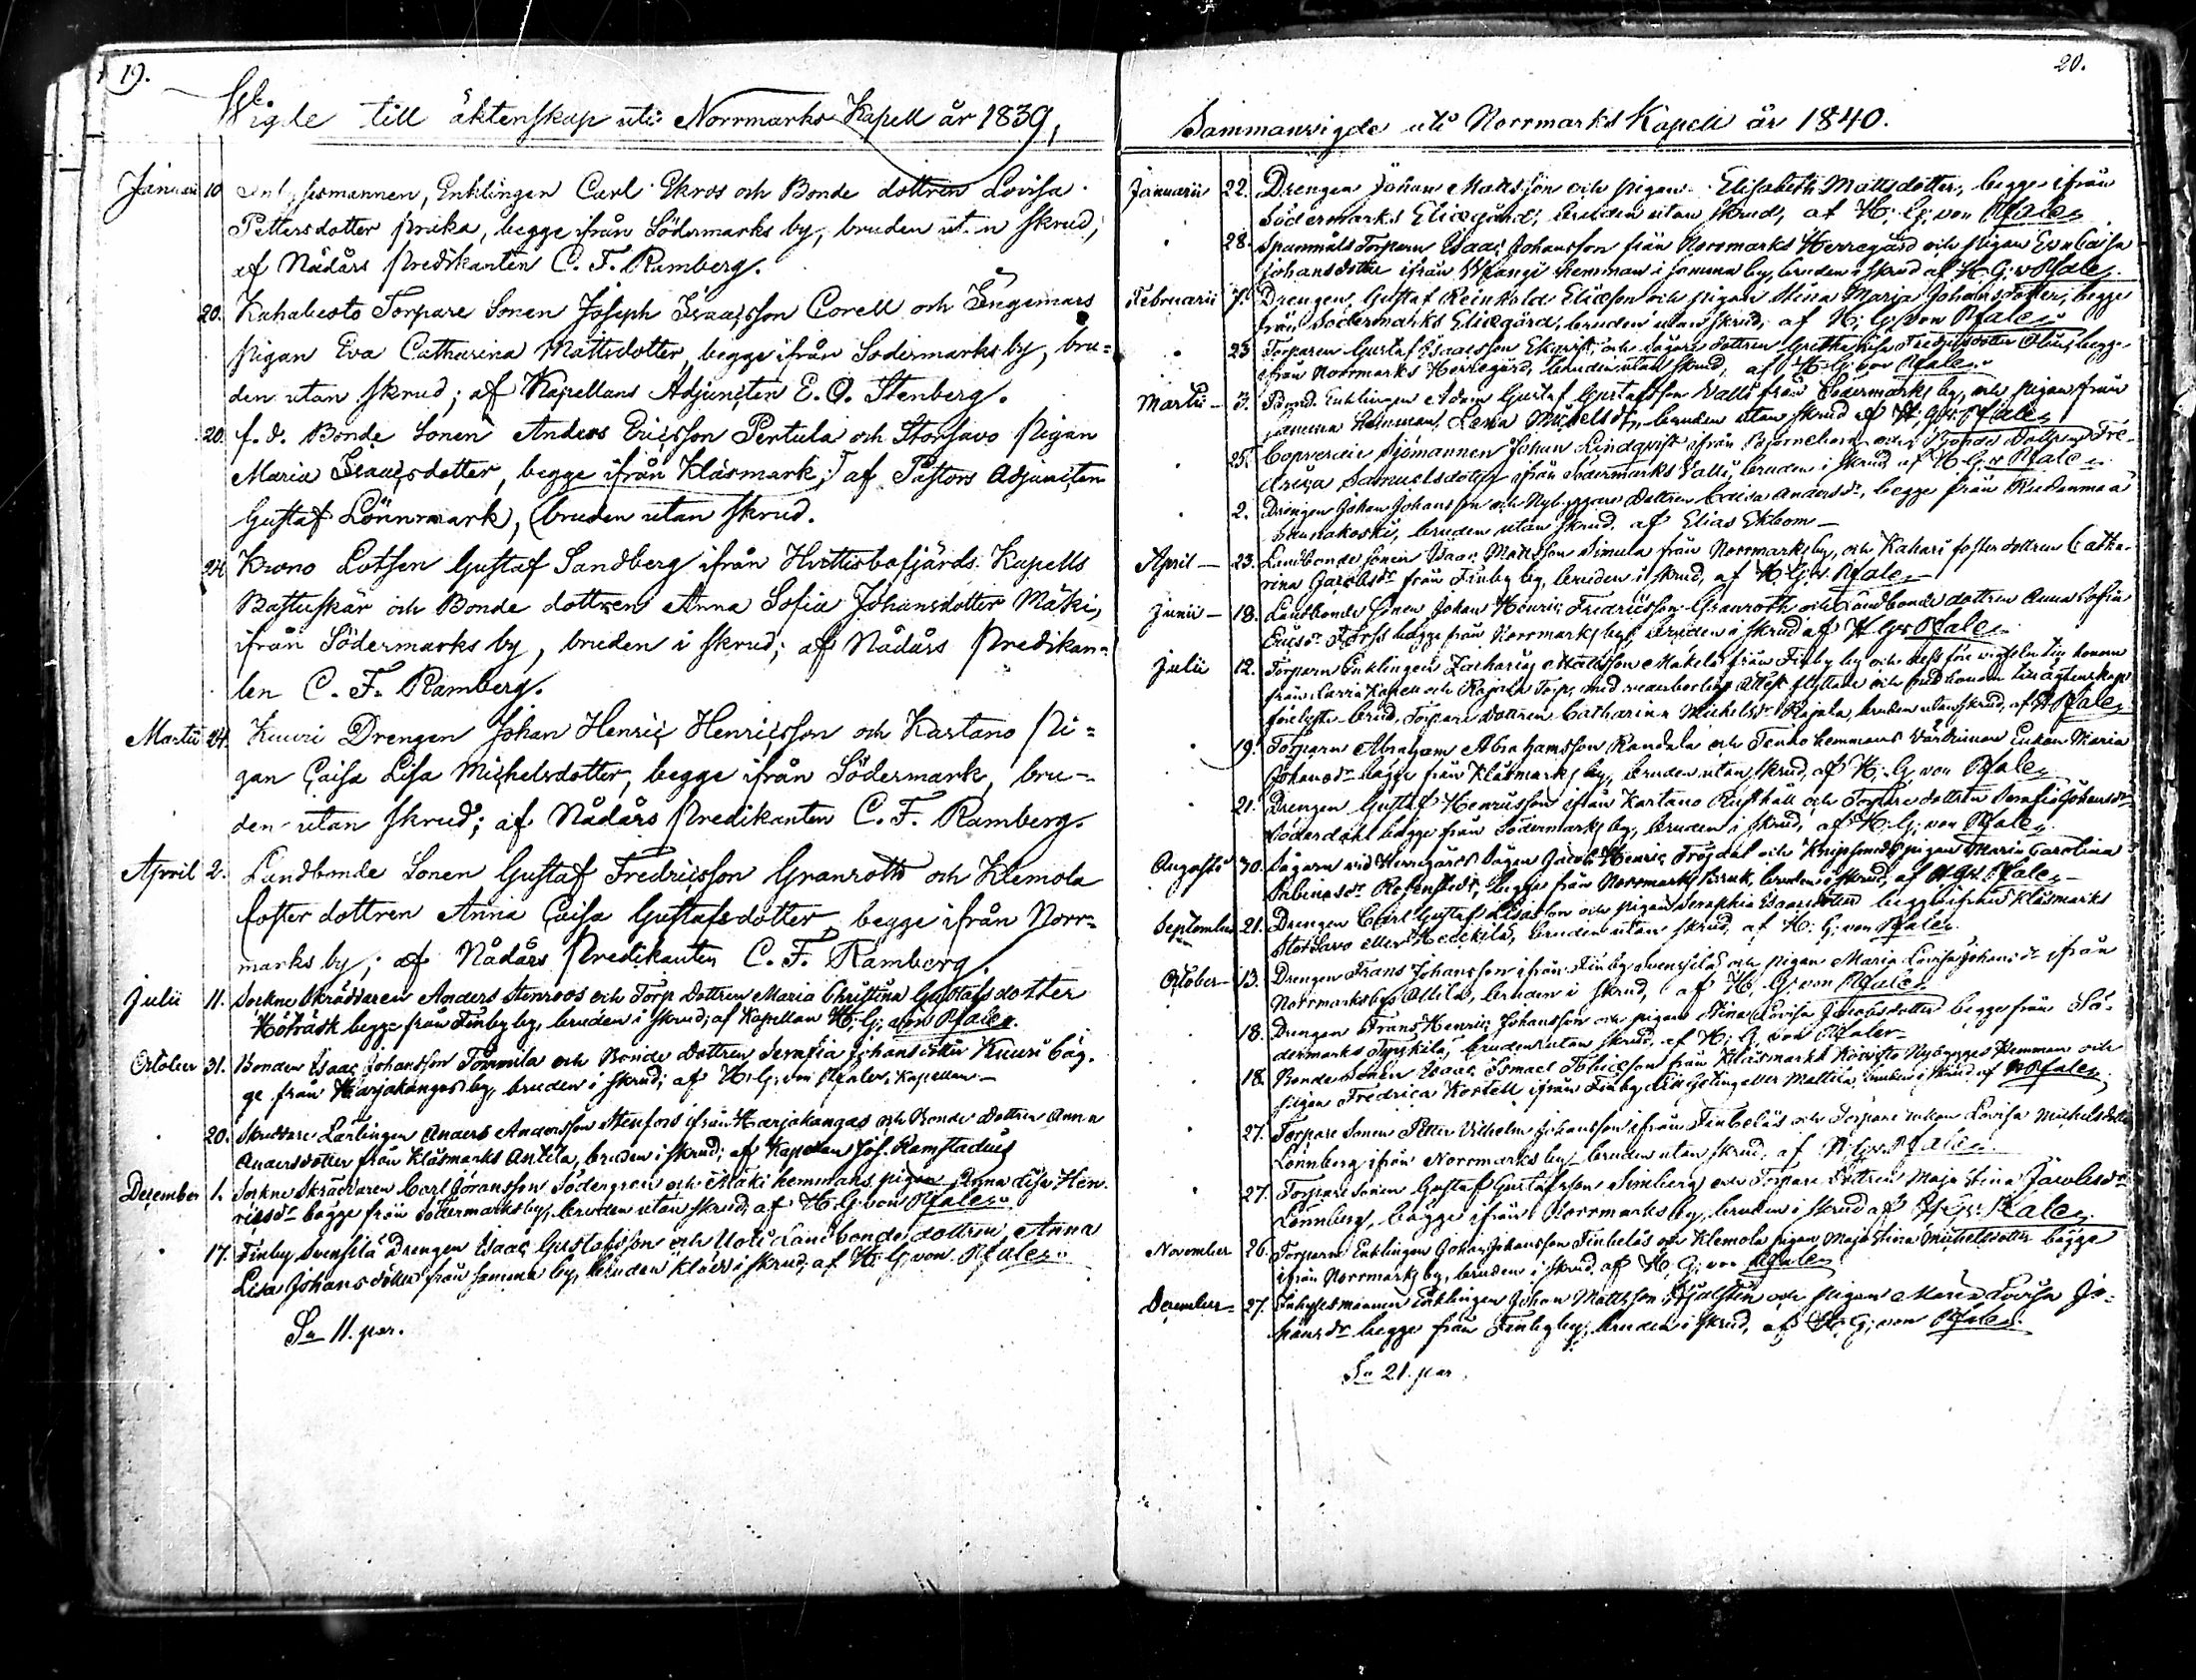 19.
Wigde till äktenskap uti Norrmarks Kapell år 1839,
Januarii 10 Inhysesmannen, Enklingen Carl Ekros och Bonde dottren Lovisa
Pettersdotter Prika, begge ifrån Södermarks by, bruden utan skrud;
af Nådårs Predikanten C. F. Ramberg.
20. Kahaluoto Torpare Sonen Joseph Isaacsson Corell och Ingemars
pigan Eva Catharina Mattsdotter, begge ifrån Södermarks by, bru=
den utan skrud; af Kapellans Adjuncten E. O. Stenberg.
20. f. d. Bonde Sonen Anders Ericsson Pertula och Storsavo Pigan
Maria Isaacsdotter, begge ifrån Klåsmark; af Pastors Adjuncten
Gustaf Lönnmark, bruden utan skrud.
24 Krono Lotsen Gustaf Sandberg ifrån Hvittisbofjärds Kapells
Bastuskär och Bonde dottren Anna Sofia Johansdotter Mäki,
ifrån Södermarks by, bruden i skrud; af Nådårs Predikan=
ten C. F. Ramberg.
Martii 24. Kuuri Drengen Johan Henric Henricsson och Kartano Pi=
gan Caisa Lisa Michelsdotter, begge ifrån Södermark, bru=
den utan skrud; af Nådårs Predikanten C. F. Ramberg.
April 2. Landbonde Sonen Gustaf Fredricsson Granroth och Klemola
foster dottren Anna Caisa Gustafsdotter, begge ifrån Norr=
marks by; af Nådårs Predikanten C. F. Ramberg.
Julii 11. Sockne Skräddaren Anders Stenroos och Torp dottren Maria Christina Gustafsdotter
Höträsk begge från Finby by, bruden i skrud; af Kapellan H. G. von Pfaler.
October 31. Bonden Isaac Johansson Tommila och Bonde dottren Serafia Johansdotter Kuuri bäg-
ge från Harjakangas by, bruden i skrud; af H. G. von Pfaler, Kapellan
20. Skräddare Lärlingen Anders Andersson Stenfors ifrån Harjakangas och Bonde dottren Anna
Andersdotter från Klåsmarks Antila, bruden i skrud; af Kapellan Jos. Ramstadius
December 1. Sockne Skräddaren Carl Göransson Södergren och Mäki hemmans pigan Anna Lisa Hen-
ricsdr begge från Södermarks by, bruden utan skrud, af H. G. von Pfaler
17. Finby Svensilä Drengen Isaac Gustafsson och Uoti Landbonde dottren Anna
Lisa Johansdotter från samma by, bruden klädd i skrud, af H. G. von Pfaler
Sa 11. par.
20.
Sammanvigde uti Norrmarks Kapell år 1840.
Januarii 22. Drengen Johan Mattsson och pigan Elisabeth Mattsdotter, begge ifrån
Södermarks Elicegård, bruden utan skrud, af H. G. von Pfaler
28. Spannmåls Torparn Isaac Johansson från Norrmarks Herregård och pigan Eva Caisa
Johansdotter ifrån hemman i samma by, bruden i skrud af H. G. v. Pfaler.
Februarii 7. Drengen, Gustaf Reinhold Elicson och pigan Stina Maria Johansdotter, begge
från Södermarks Elicegård, bruden utan skrud, af H. G. von Pfaler
23 Torparen Gustaf Isaacsson Ekqvist, och dottren Fredricsdotter begge
ifrån Norrmarks Herregård, bruden utan skrud, af H. G. von Pfaler
Martii 3. Bond. Enklingen Adam Gustaf Gustafsson Valli från Södermarks by, och pigan från
samma hemman, Lena Michelsdr, bruden utan skrud af H. G. v. Pfaler
25. Copverdie Sjömannen Johan Lindqvist ifrån Björneborg och Bonde dottren Fre-
drica Samuelsdotter ifrån Södermarks Valli, bruden i skrud af H. G. v. Pfaler
2. Drengen Johan Johansson och Nybyggare dottren Caisa Andersdr, begge från
Saunakoski, bruden utan skrud. af Elias Ekbom
April 23. Landbonde sonen Isaac Mattsson Simula från Norrmarks by, och Kahari foster dottren Catha-
rina Jacobsdr från Finby by, bruden i skrud, af H. G. v. Pfaler
Junii 18. Landbonde Sonen Johan Henric Fredricsson Granroth och Landbonde dottren Anna Sofia
Ericsdr Forss begge från Norrmarks by, bruden i skrud af H. G. v. Pfaler
Julii 12. Torparn Enklingen Zacharias Mattsson Mäkelä från Finby by och dess före vigseln till honom
från Kapell och Rajala Torp, med attest flyttade och med honom till äktenskap
förelyste brud, Torpare dottren Catharina Michelsdr Rajala, bruden utan skrud, af Pfaler
19. Torparn Abraham Abrahamsson Randala och Tenko hemmans Enkan Maria
Johansdr bägge från Klåsmarks by, bruden utan skrud, af H. G. von Pfaler
21. Drengen Gustaf Henricsson ifrån Kartano Rusthåll och Torpare dottren Serafia Johansdr
Söderdahl bägge från Södermarks by, bruden i skrud, af H. G. von Pfaler.
Augusti 30. Sågarn vid Herregårds Sågen Jacob Henric Frögdal och Knipsmeds pigan Maria Carolina
Sabinasdr Rosenstedt, begge från Norrmarks Bruk, bruden i skrud, af H. G. v. Pfaler
September 21. Drengen Carl Gustaf Lisasson och pigan Seraphia Isaacsdotter begge ifrån Klåsmarks
Storsavo eller Heickilä, bruden utan skrud, af H. G. von Pfaler.
October 13. Drengen Frans Johansson ifrån Finby Svensilä och pigan Maria Lovisa Johansdr ifrån
Norrmarks bys Attila, bruden i skrud, af H. G. von Pfaler.
18. Drengen Frans Henric Johansson och pigan Stina Lovisa Jacobsdotter begge från Sö-
dermarks bruden utan skrud, af H. G. von Pfaler
18. Bonde Sonen Isaac Ismael Tobiesson från Klåsmarks Koivisto Nybygges Hemman och
pigan Fredrica Kortell ifrån Finby eller Mattila, bruden i skrud af Pfaler
27. Torpare Sonen Petter Vilhelm Johansson ifrån Finbeläs och Torpare enkan Lovisa Michelsdotter
Lönnberg ifrån Norrmarks by, bruden utan skrud, af H. G. v. Pfaler
27. Torpare Sonen Gustaf Gustafsson Simberg och Torpare dottren Maja Stina Jacobsdr
Lönnberg, bägge ifrån Norrmarks by, bruden i skrud af H. G. v. Pfaler.
November 26. Torparn Enklingen Johan Johansson Finbeläs och Klemola pigan Maja Stina Michelsdotter bägge
ifrån Norrmarks by, bruden i skrud af H. G. von Pfaler
December 27. Inhysesmannen Enklingen Johan Mattsson Hjulstén och pigan Maria Lovisa Jo-
hansdr begge från Finby by, bruden i skrud, af H. G. von Pfaler.
Sa 21. par